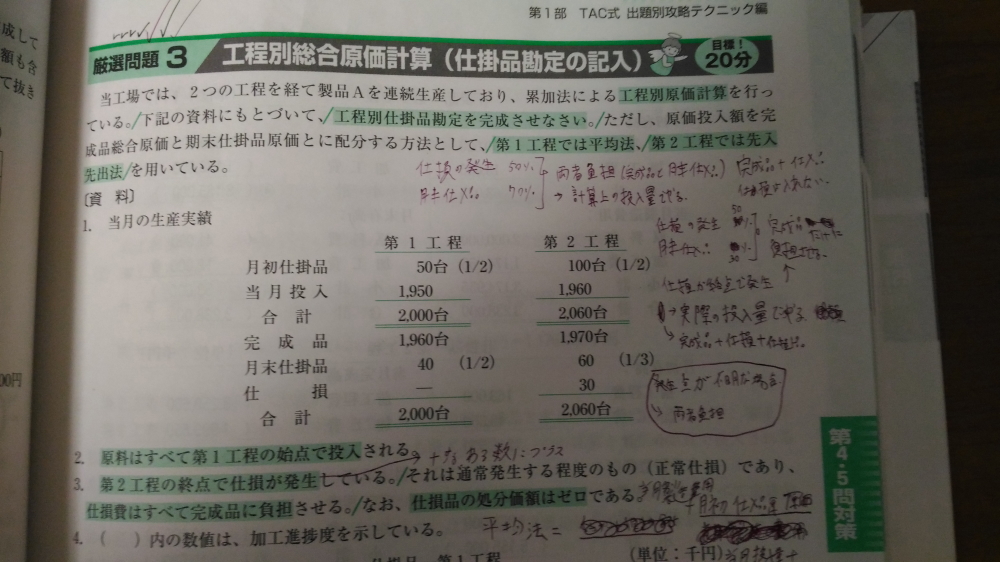 第1部 TAC式 出題別攻略テクニック編
成して
額も含
て抜き
厳選問題 3 工程別総合原価計算(仕掛品勘定の記入) 目標! 20分
当工場では、2つの工程を経て製品Aを連続生産しており、累加法による工程別原価計算を行っ
ている。/下記の資料にもとづいて、/工程別仕掛品勘定を完成させなさい。/ただし、原価投入額を完
成品総合原価と期末仕掛品原価とに配分する方法として、/第1工程では平均法、/第2工程では先入
先出法/を用いている。
仕損の発生 50% 両者負担(完成品と月末仕〆品) 完成品+仕〆品
〔資 料〕
月末仕〆品 70% → 計算上の投入量でやる。 仕損は入れない
1. 当月の生産実績
仕損の発生 50% 完成品
第1工程 第2工程
月末仕〆品 30% 負担させる。
月初仕掛品 50台 (1/2) 100台 (1/2)
仕損が終点で発生
当月投入 1,950 1,960
→実際の投入量でやる
合計 2,000台 2,060台
完成品+仕損+仕〆品
完成品 1,960台 1,970台
月末仕掛品 40 (1/2) 60 (1/3)
発生点が不明な場合
仕損 — 30
→両者負担
合計 2,000台 2,060台
00円
2. 原料はすべて第1工程の始点で投入される。
3. 第2工程の終点で仕損が発生している。/それは通常発生する程度のもの(正常仕損)であり、
仕損費はすべて完成品に負担させる。/なお、仕損品の処分価額はゼロである。
4. ( )内の数値は、加工進捗度を示している。 平均法=
(単位:千円)
仕掛品-第1工程
第4・5問対策